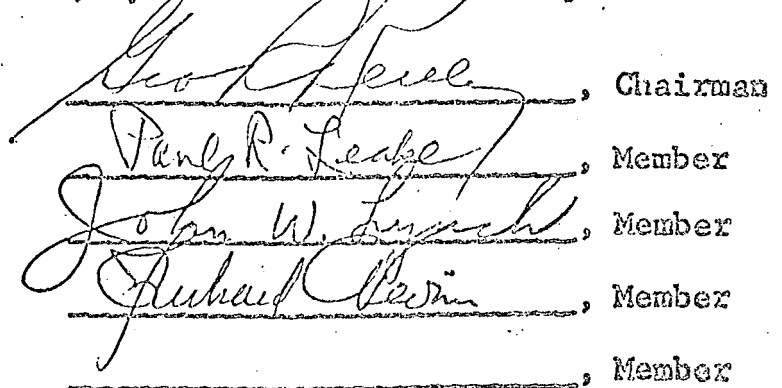 Geo, Chairman
Paul R. Leake, Member
John W. Lynch, Member
Richard, Member
, Member